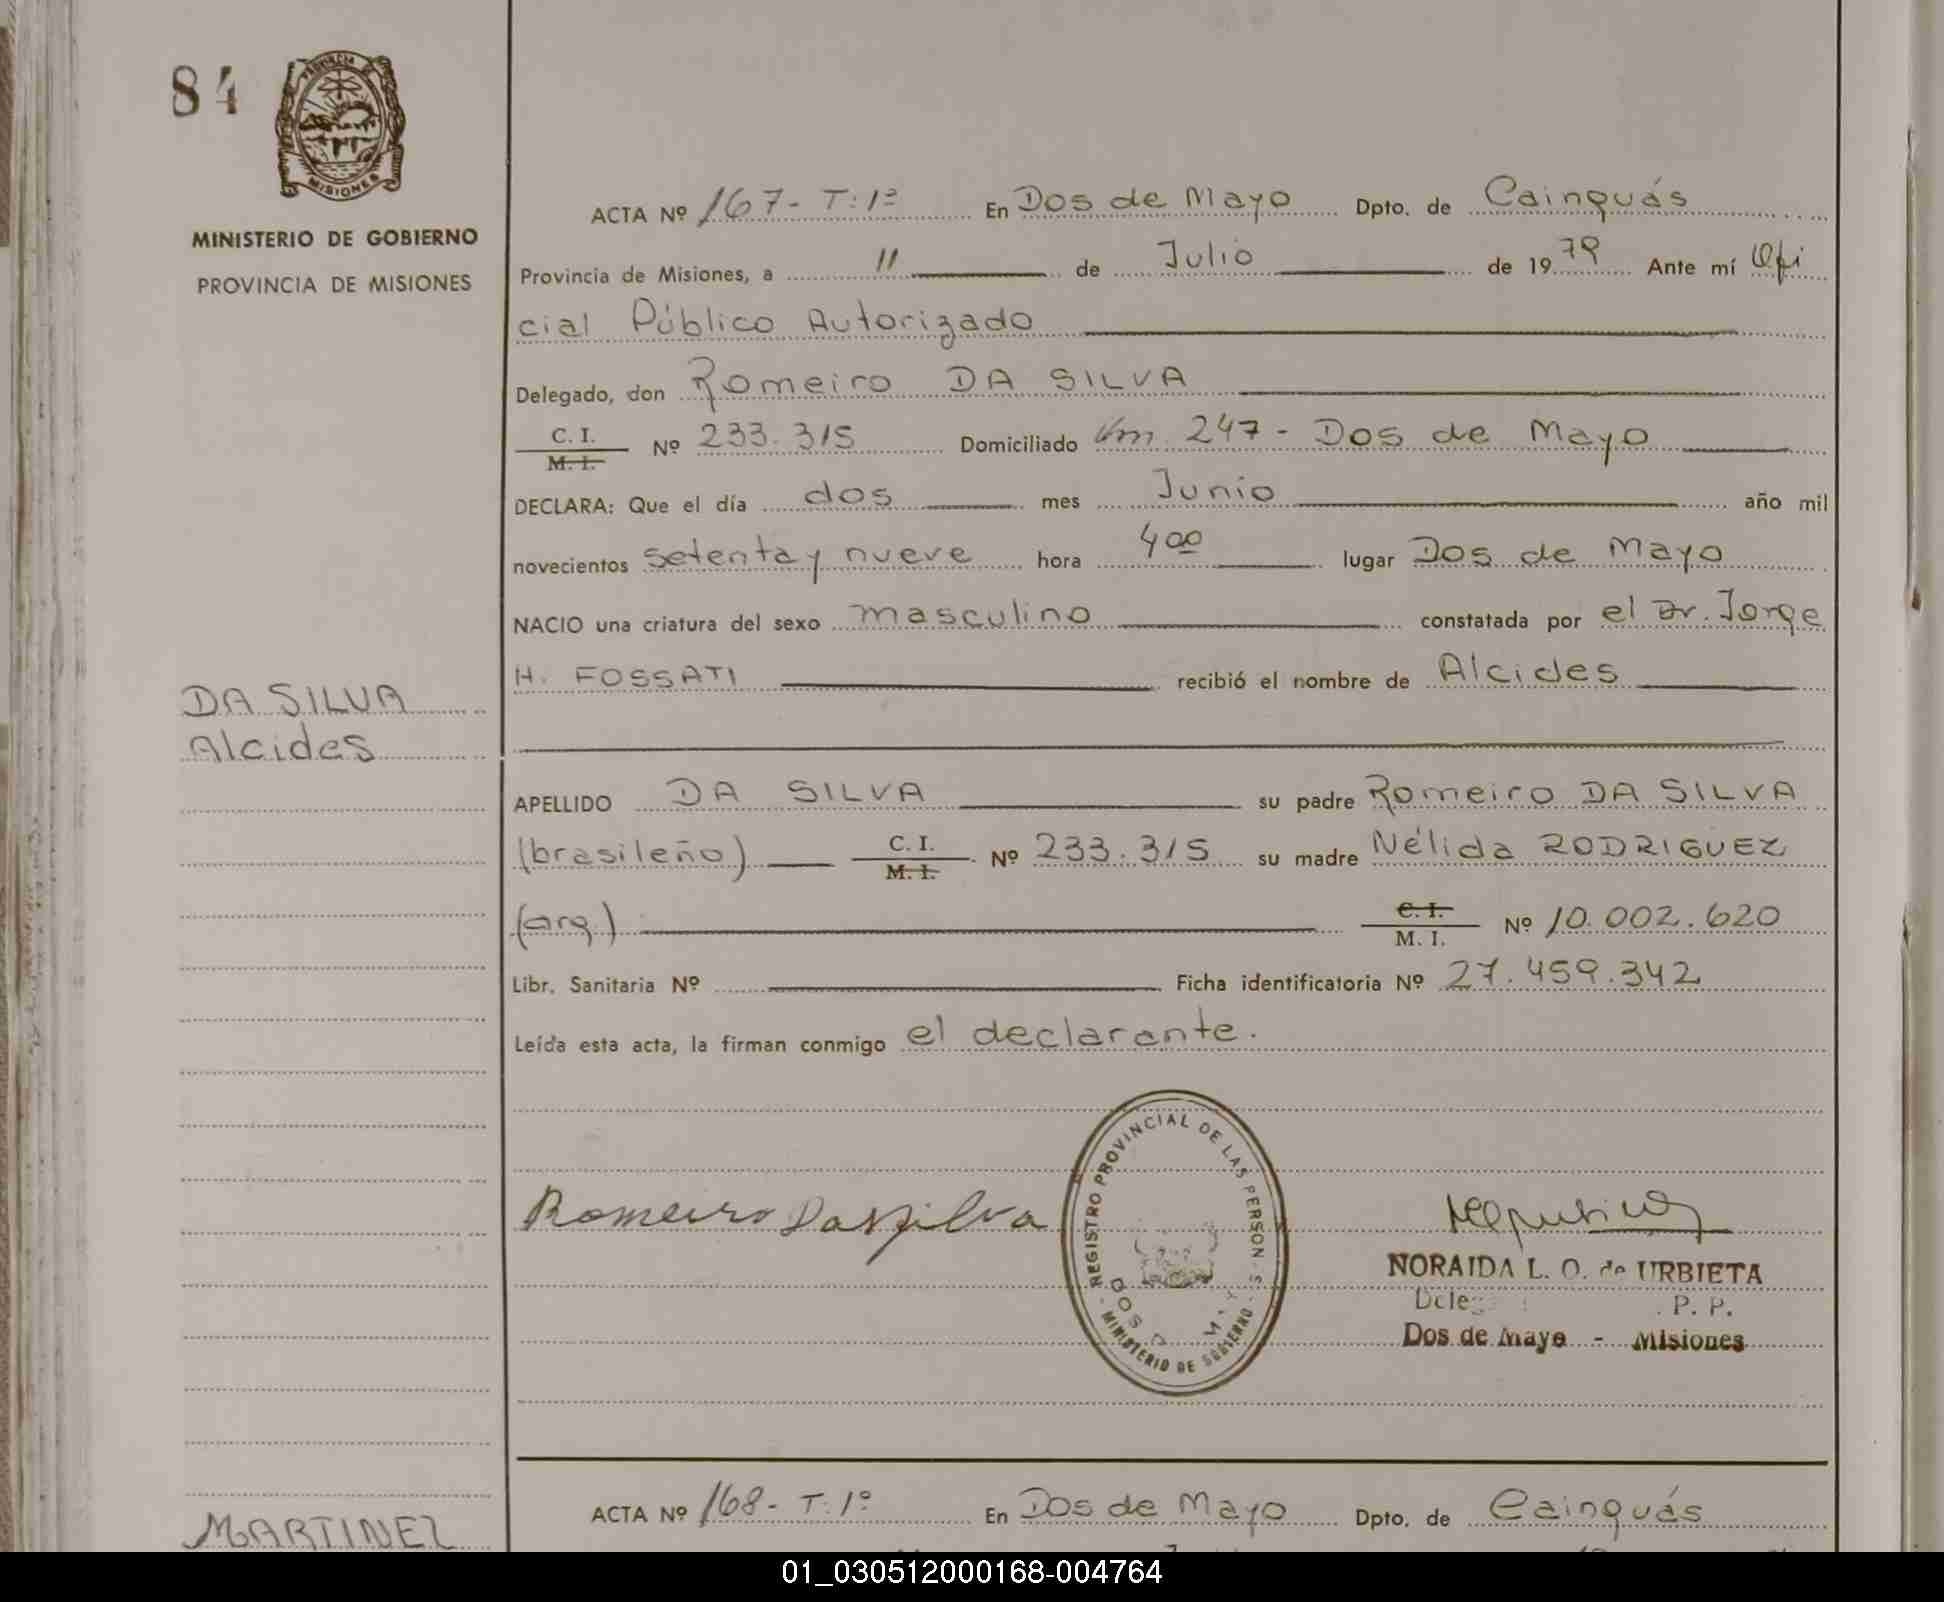 84
PROVINCIA DE
MISIONES
MINISTERIO DE GOBIERNO
PROVINCIA DE MISIONES
ACTA Nº 167- T: 1º En Dos de Mayo Dpto. de Cainguás
Provincia de Misiones, a 11 de Julio de 1979 Ante mí Ofi
cial Público Autorizado
Delegado, don Romeiro DA SILVA
C. I.
M. I. Nº 233.315 Domiciliado Km. 247 - Dos de Mayo
DECLARA: Que el día dos mes Junio año mil
novecientos setenta y nueve hora 4 00 lugar Dos de Mayo
NACIO una criatura del sexo masculino constatada por el Dr. Jorge
H. FOSSATI recibió el nombre de Alcides
DA SILVA
Alcides
APELLIDO DA SILVA su padre Romeiro DA SILVA
(brasileño) C. I.
M. I. Nº 233.315 su madre Nélida RODRIGUEZ
(arg.) C. I.
M. I. Nº 10.002.620
Libr. Sanitaria Nº Ficha identificatoria Nº 27.459.342
Leída esta acta, la firman conmigo el declarante.
Romeiro Da Silva
REGISTRO PROVINCIAL DE LAS PERSON S
DOS D MAY
- MINISTERIO DE GOBIERNO -
NORAIDA L. O. de URBIETA
Dele P. P.
Dos de Mayo - Misiones
ACTA Nº 168- T: 1º En Dos de Mayo Dpto. de Cainguás
MARTINEZ
01_030512000168-004764